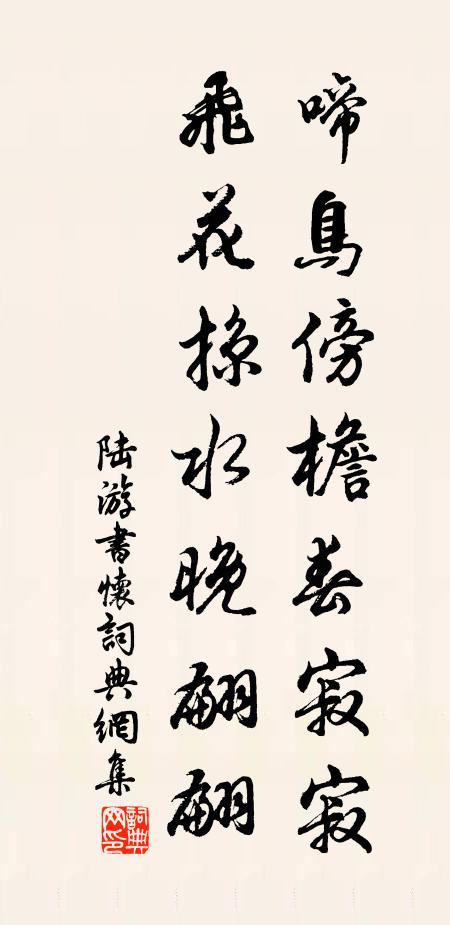 啼鳥傍檐春寂寂
飛花掠水晚翩翩
陆游書懷詞典網集
詞典网印